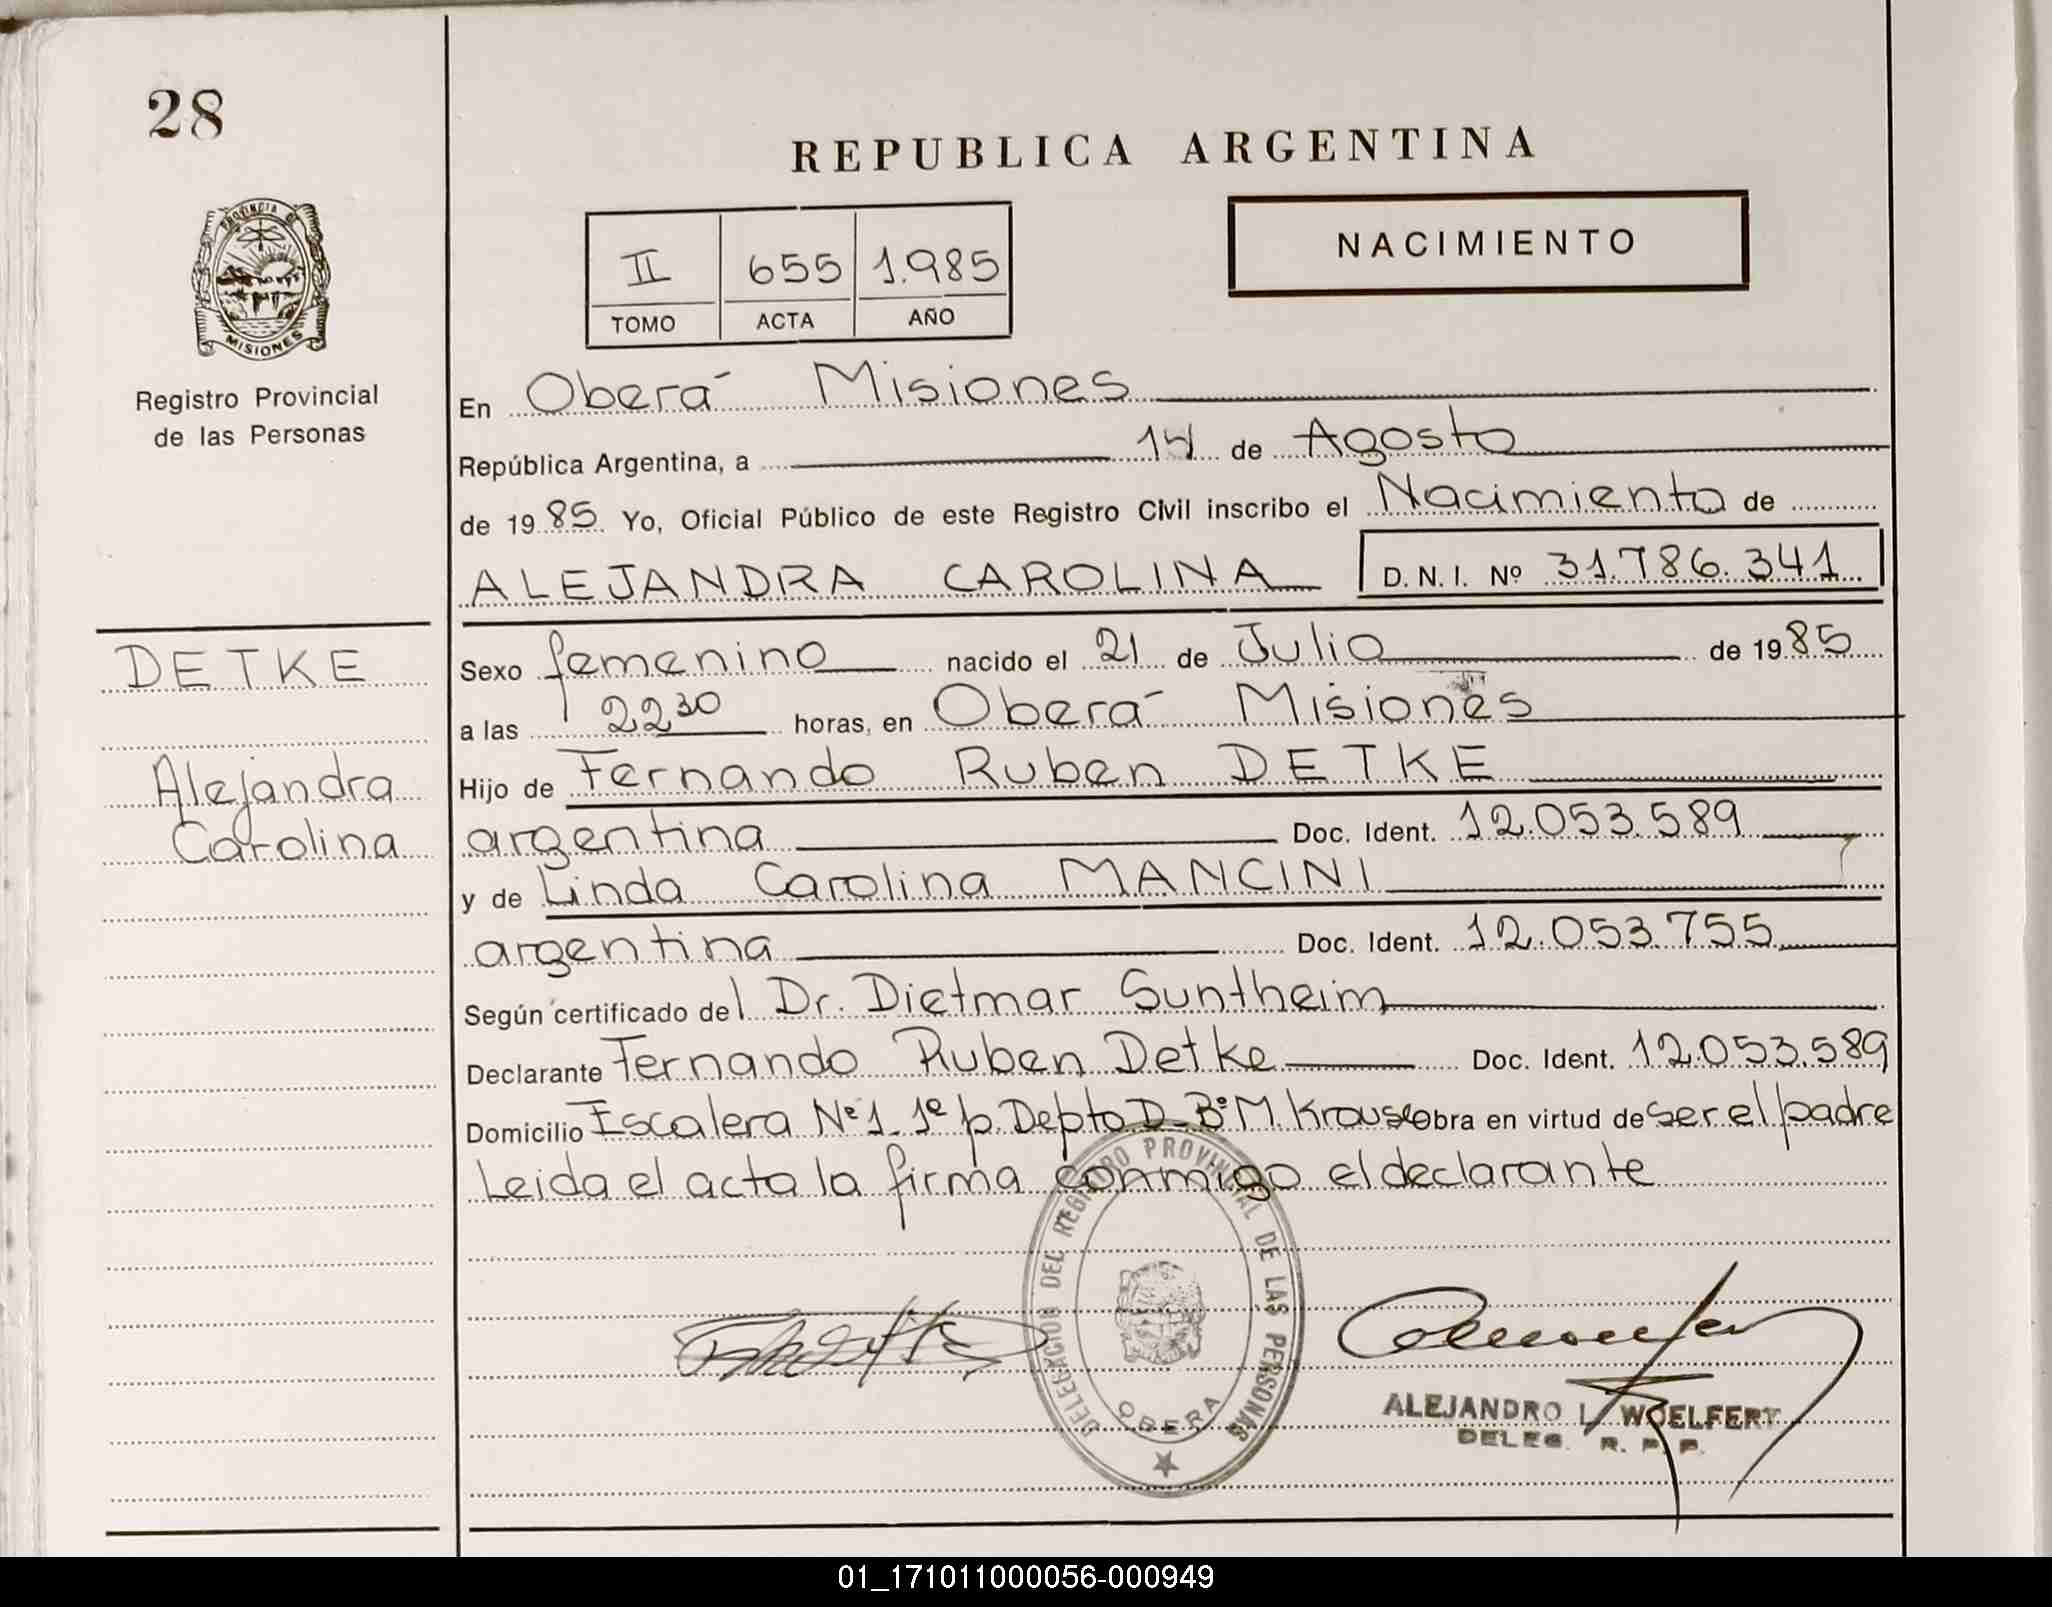 28
REPUBLICA ARGENTINA
PROVINCIA DE
MISIONES
II 655 1.985
TOMO ACTA AÑO
NACIMIENTO
Registro Provincial
de las Personas
En Oberá Misiones
República Argentina, a 14 de Agosto
de 1985 Yo, Oficial Público de este Registro Civil inscribo el Nacimiento de
ALEJANDRA CAROLINA D.N.I. Nº 31.786.341
DETKE
Alejandra
Carolina
Sexo femenino nacido el 21 de Julio de 1985
a las 22 30 horas, en Oberá Misiones
Hijo de Fernando Ruben DETKE
argentina Doc. Ident. 12.053.589
y de Linda Carolina MANCINI
argentina Doc. Ident. 12.053.755
Según certificado del Dr. Dietmar Suntheim
Declarante Fernando Ruben Detke Doc. Ident. 12.053.589
Domicilio Escalera Nº1 1º p. Depto D Bº M. Krause obra en virtud de ser el padre
Leida el acta la firma conmigo el declarante
DELEGACION DEL REGISTRO PROVINCIAL DE LAS PERSONAS
OBERA
ALEJANDRO L. WOELFERT
DELEG. R. P. P.
01_171011000056-000949